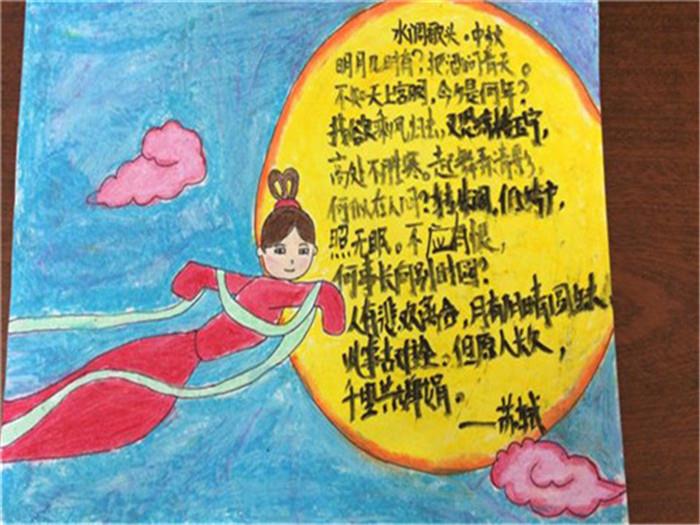 水调歌头。中秋
明月几时有？把酒问青天。
不知天上宫阙，今夕是何年？
我欲乘风归去，又恐琼楼玉宇，
高处不胜寒。起舞弄清影，
何似在人间？转朱阁，低绮户，
照无眠。不应有恨，
何事长向别时圆？
人有悲欢离合，月有阴晴圆缺，
此事古难全。但愿人长久，
千里共婵娟。
——苏轼